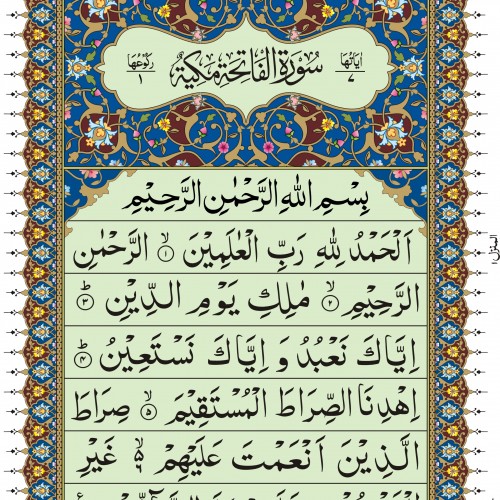 اٰيَاتُهَا ٧ سُوْرَةُ الْفَاتِحَةِ مَكِّيَّةٌ رُكُوْعُهَا ١
بِسْمِ اللّٰهِ الرَّحْمٰنِ الرَّحِيْمِ
اَلْحَمْدُ لِلّٰهِ رَبِّ الْعٰلَمِيْنَ ۙ﴿١﴾ الرَّحْمٰنِ
الرَّحِيْمِ ۙ﴿٢﴾ مٰلِكِ يَوْمِ الدِّيْنِ ؕ﴿٣﴾
اِيَّاكَ نَعْبُدُ وَ اِيَّاكَ نَسْتَعِيْنُ ؕ﴿٤﴾
اِهْدِنَا الصِّرَاطَ الْمُسْتَقِيْمَ ۙ﴿٥﴾ صِرَاطَ
الَّذِيْنَ اَنْعَمْتَ عَلَيْهِمْ ۙ﴿٦﴾ غَيْرِ
المنزل ١